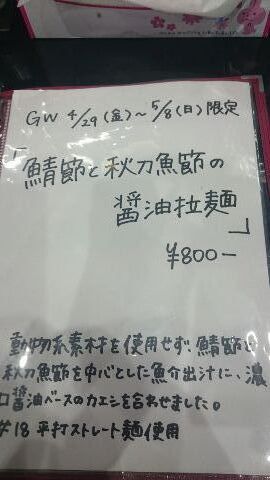 GW 4/29(金)~5/8(日)限定
「鯖節と秋刀魚節の
醤油拉麺」
¥800-
動物系素材を使用せず、鯖節と
秋刀魚節を中心とした魚介出汁に、濃
口醤油ベースのカエシを合わせました。
#18 平打ストレート麺使用